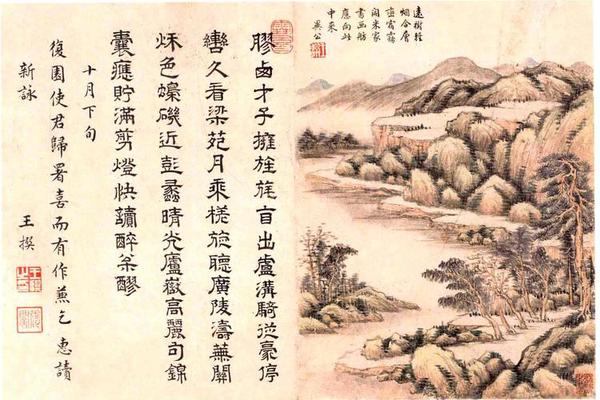 遠樹輕
烟合層
巒宿靄
開米家
書画舫
應向此
中來
異公
膠西才子擁旌旄首出盧溝騎從豪停
轡久看梁苑月乘槎旋聽廣陵濤蕪關
秋色蟂磯近彭蠡晴光廬嶽高麗句錦
囊應貯滿剪燈快讀醉醪
十月下旬
復園使君歸署喜而有作兼乞 惠讀
新詠
王撰